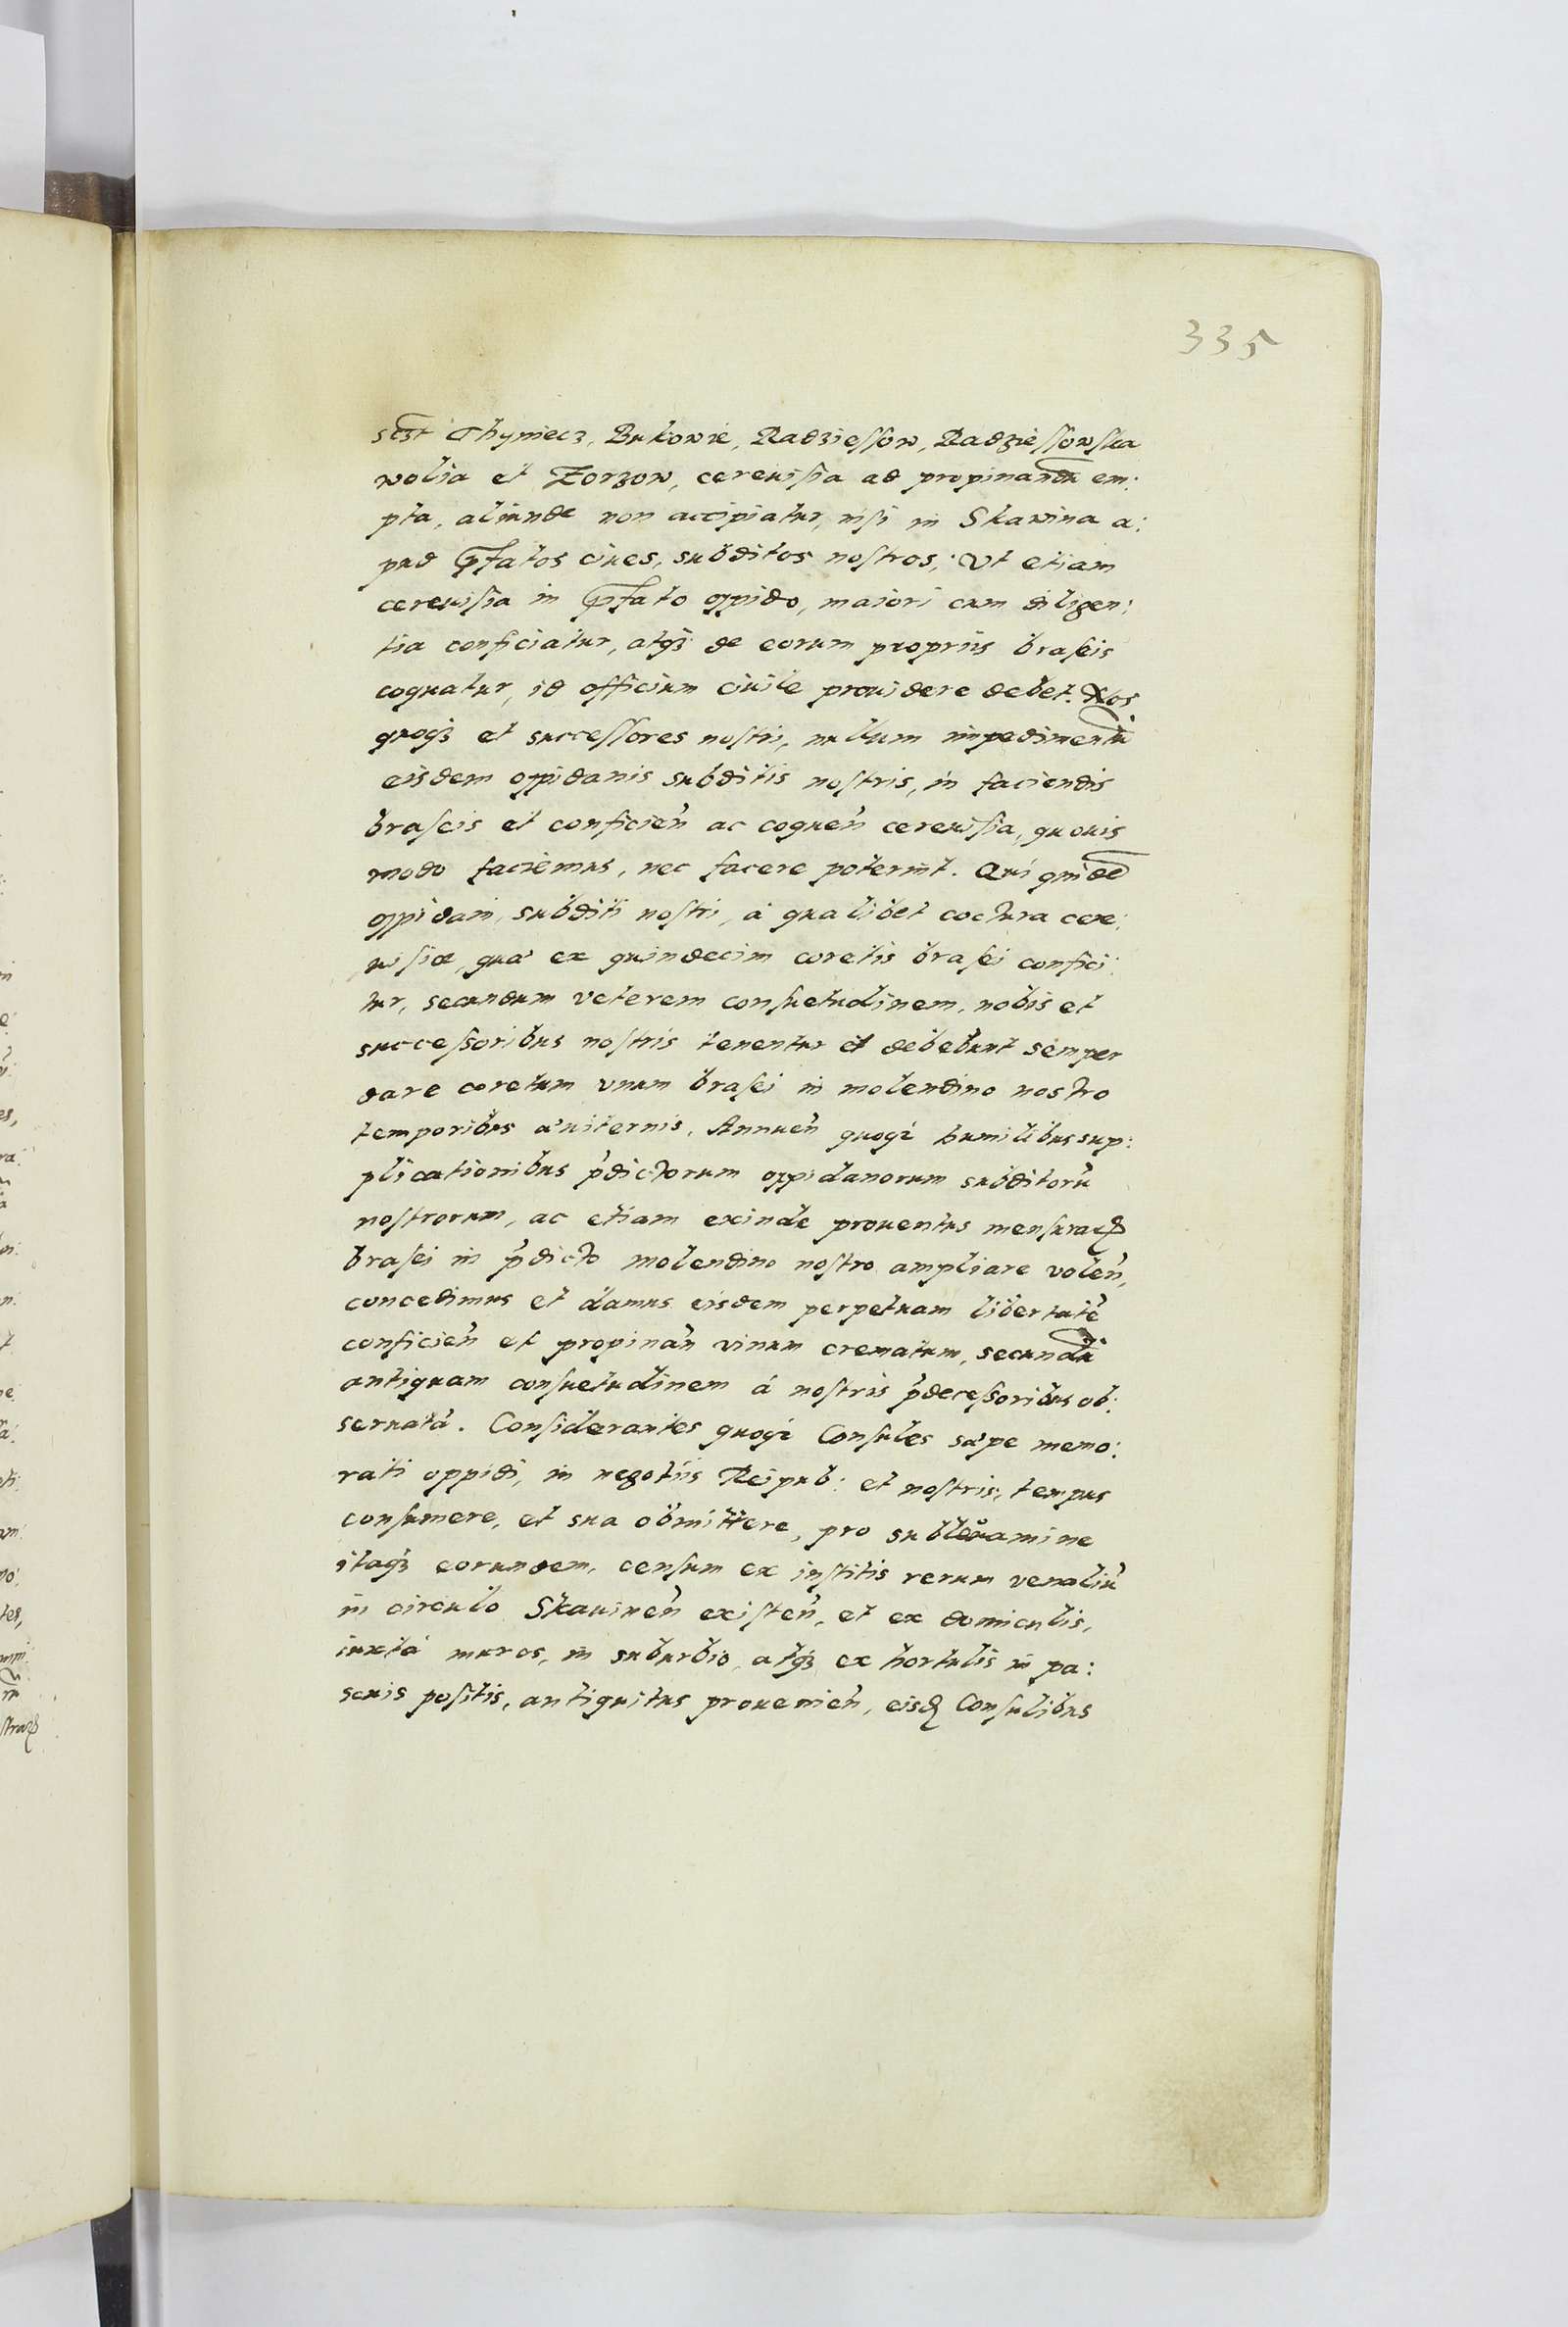 335
scꝫt Thyniecz, Bukowie, Radziessow, Radziessowska
wolia et Zorzow, cereuisia ad propinandū em:
pta, aliunde non accipiatur, nisi in Skawina a:
pud p̄fatos ciues, subditos nostros, Vt etiam
cereuisia in p̄fato oppido, maiori cum diligen:
tia conficiatur, atqꝫ de eorum proprijs braseis
coquatur, id officium ciuile prouidere debet. Nos
quoqꝫ et successores nostri, nullum impedimentū
eisdem oppidanis subditis nostris, in faciendis
braseis et conficień ac coqueń cereuisia, quouis
modo faciemus, nec facere poterint. Qui quidē
oppidani, subditi nostri, à qualibet coctura cere:
uisiæ, quæ ex quindecim coretis brasei confici:
tur, secundum veterem consuetudinem, nobis et
successoribus nostris tenentur et debebunt semper
dare coretum vnum brasei in molendino nostro
temporibus æuiternis. Annueń quoqꝫ humilibus sup:
plicationibus p̄dictorum oppidanorum subditorū
nostrorum, ac etiam exinde prouentus mensuraꝝ
brasei in p̄dicto molendino nostro ampliare voleń,
concedimus et damus eisdem perpetuam libertatē
conficień et propinań vinum crematum, secundū
antiquam consuetudinem à nostris p̄decessoribus ob:
seruatā. Considerantes quoqꝫ Consules sæpe memo:
rati oppidi, in negotijs Reipub: et nostris, tempus
consumere, et sua obmittere, pro subleuamine
itaqꝫ eorundem, censum ex institis rerum venaliū
in circulo Skauineń existeń, et ex domiculis,
iuxta muros, in suburbio, atqꝫ ex hortulis in pa:
scuis positis, antiquitus prouenień, eisd Consulibus